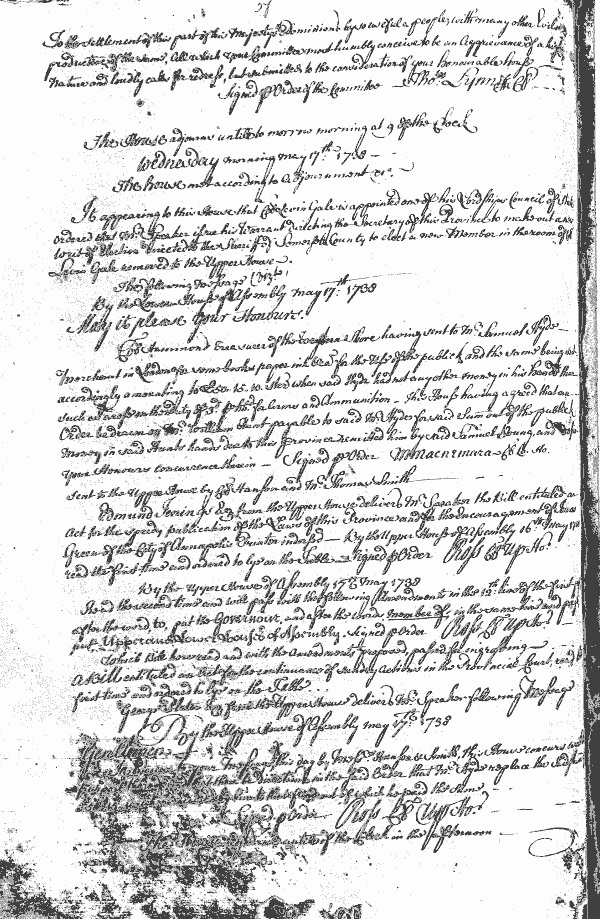 57
To the settlement of this part of his Majestys Dominions by so useful a people, with many other Evils
productive of the same, All which your Committee most humbly conceive to be an Aggrievance of a high
nature and loudly calls for redress, but submitted to the consideration of your honourable house
Signed p Order of the Committee Thos. Lynn Cl Co
The House adjourns until to morrow morning at 9 of the Clock
Wednesday morning may 17th 1738
The house met according to Adjournment &c.
It appearing to this House that Col Levin Gale is appointed one of his Lordships Council of State
ordered that Mr Speaker issue his Warrant directing the Secretary of this Province to make out a new
writ of Election directed to the Sheriff of Somerset County to elect a new Member in the room of
Levin Gale removed to the Upper House
The following message Vizt.
By the Lower House of Assembly may 17th 1738
May it please your Honours.
Col Hammond treasurer of the western Shore having sent to Mr Samuel Hyde
Merchant in London for some books paper ink &ca for the Use of the publick, and the same being
accordingly amounting to 15. 10. Sterl when said Hyde had not any other money in his hands than
such as arose on the duty of 3d p hhd for Arms and Ammunition The House having agreed that an
Order be drawn on Mr William Hunt payable to said Mr Hyde for said Sum out of the publick
money in said Hunts hands due to this Province remitted him by said Samuel Young, and
your Honours concurrence therein Signed p Order M Macnemara Cl Lo. Ho.
sent to the Upper House by Col Hanson and Mr Thomas Smith
Edmund Jenings Esq from the Upper House delivers Mr Speaker the Bill entituled an
Act for the speedy publication of the Laws of this Province and for the Encouragement of Jonas
Green of the City of Annapolis Printer indorsed By the Upper House of Assembly 16th May 1738
read the first time and ordered to lye on the Table Signed p Order Ross Cl Up Ho.
By the Upper House of Assembly May 1738
Read the second time and will pass with the following Amendments in the 12th line of the first
after the word to, put the Governour, and after the words member of, in the same line and page
put Upper and Lower Houses of Assembly. Signed p Order Ross Cl Up Ho.
Which Bill here read and with the Amendments proposed, passed for engrossing
A Bill entituled an Act for the continuance of sundry Actions in the Provincial Court, read the
first time and ordered to lye on the Table
George Plater Esq from the Upper House delivers Mr Speaker following Message
By the Upper House of Assembly may 17th 1738
Gentlemen
your Message this day by Messrs Hanson & Smith, this House concurs
that there be Directions in the said Order that Mr Hyde replace the
which he paid the same
Signed p Order Ross Cl Up Ho.
until of the Clock in the Afternoon